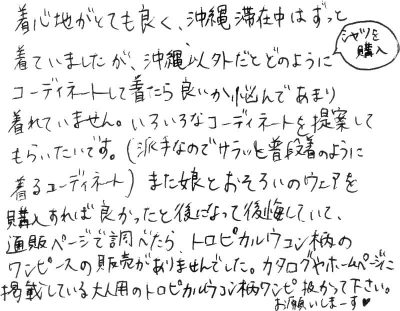 着心地がとても良く、沖縄滞在中はずっと
着ていましたが、沖縄以外だとどのように
シャツを
購入
コーディネートして着たら良いか悩んであまり
着れていません。いろいろなコーディネートを提案して
もらいたいです。(派手なのでサラッと普段着のように
着るコーディネート) また娘とおそろいのウェアを
購入すれば良かったと後になって後悔していて、
通販ページで調べたら、トロピカルウコン柄の
ワンピースの販売がありませんでした。カタログやホームページに
掲載している大人用のトロピカルウコン柄ワンピ扱かって下さい。
お願いしまーす♥